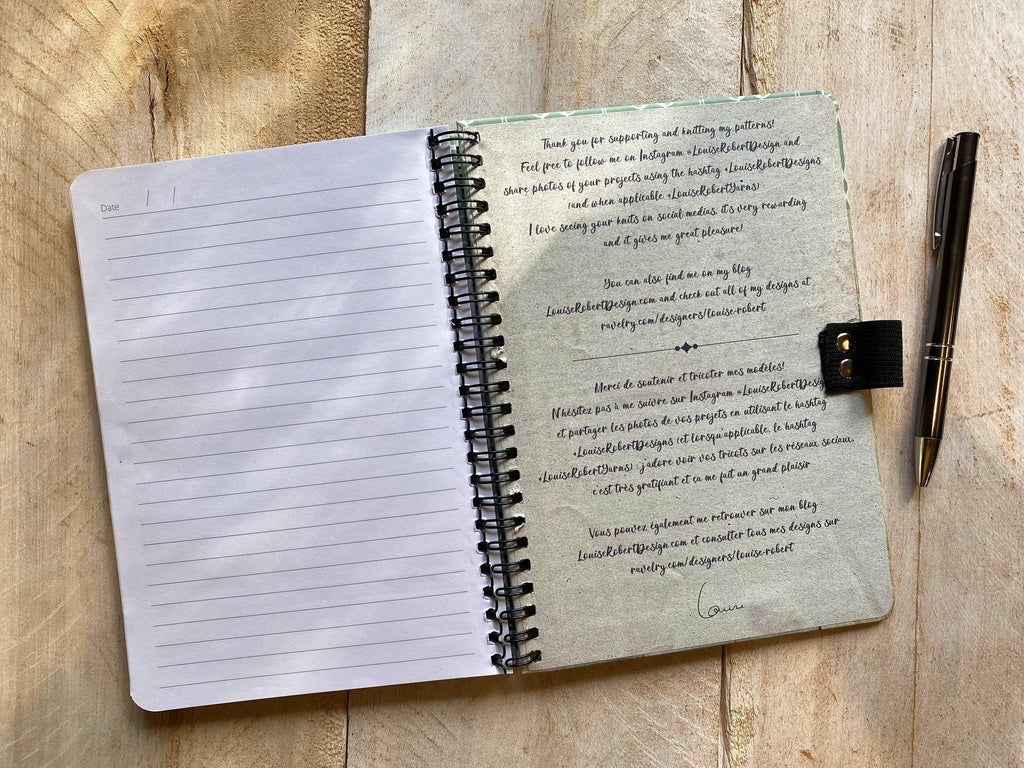 Date / /
Thank you for supporting and knitting my patterns!
Feel free to follow me on Instagram @LouiseRobertDesign and
share photos of your projects using the hashtag #LouiseRobertDesigns
(and when applicable #LouiseRobertYarns)
I love seeing your knits on social medias, it's very rewarding
and it gives me great pleasure!
You can also find me on my blog
LouiseRobertDesign.com and check out all of my designs at
ravelry.com/designers/louise-robert
Merci de soutenir et tricoter mes modèles!
N'hésitez pas à me suivre sur Instagram @LouiseRobertDesign
et partager les photos de vos projets en utilisant le hashtag
#LouiseRobertDesigns (et lorsqu'applicable, le hashtag
#LouiseRobertYarns) : j'adore voir vos tricots sur les réseaux sociaux,
c'est très gratifiant et ça me fait un grand plaisir
Vous pouvez également me retrouver sur mon blog
LouiseRobertDesign.com et consulter tous mes designs sur
ravelry.com/designers/louise-robert
Louise